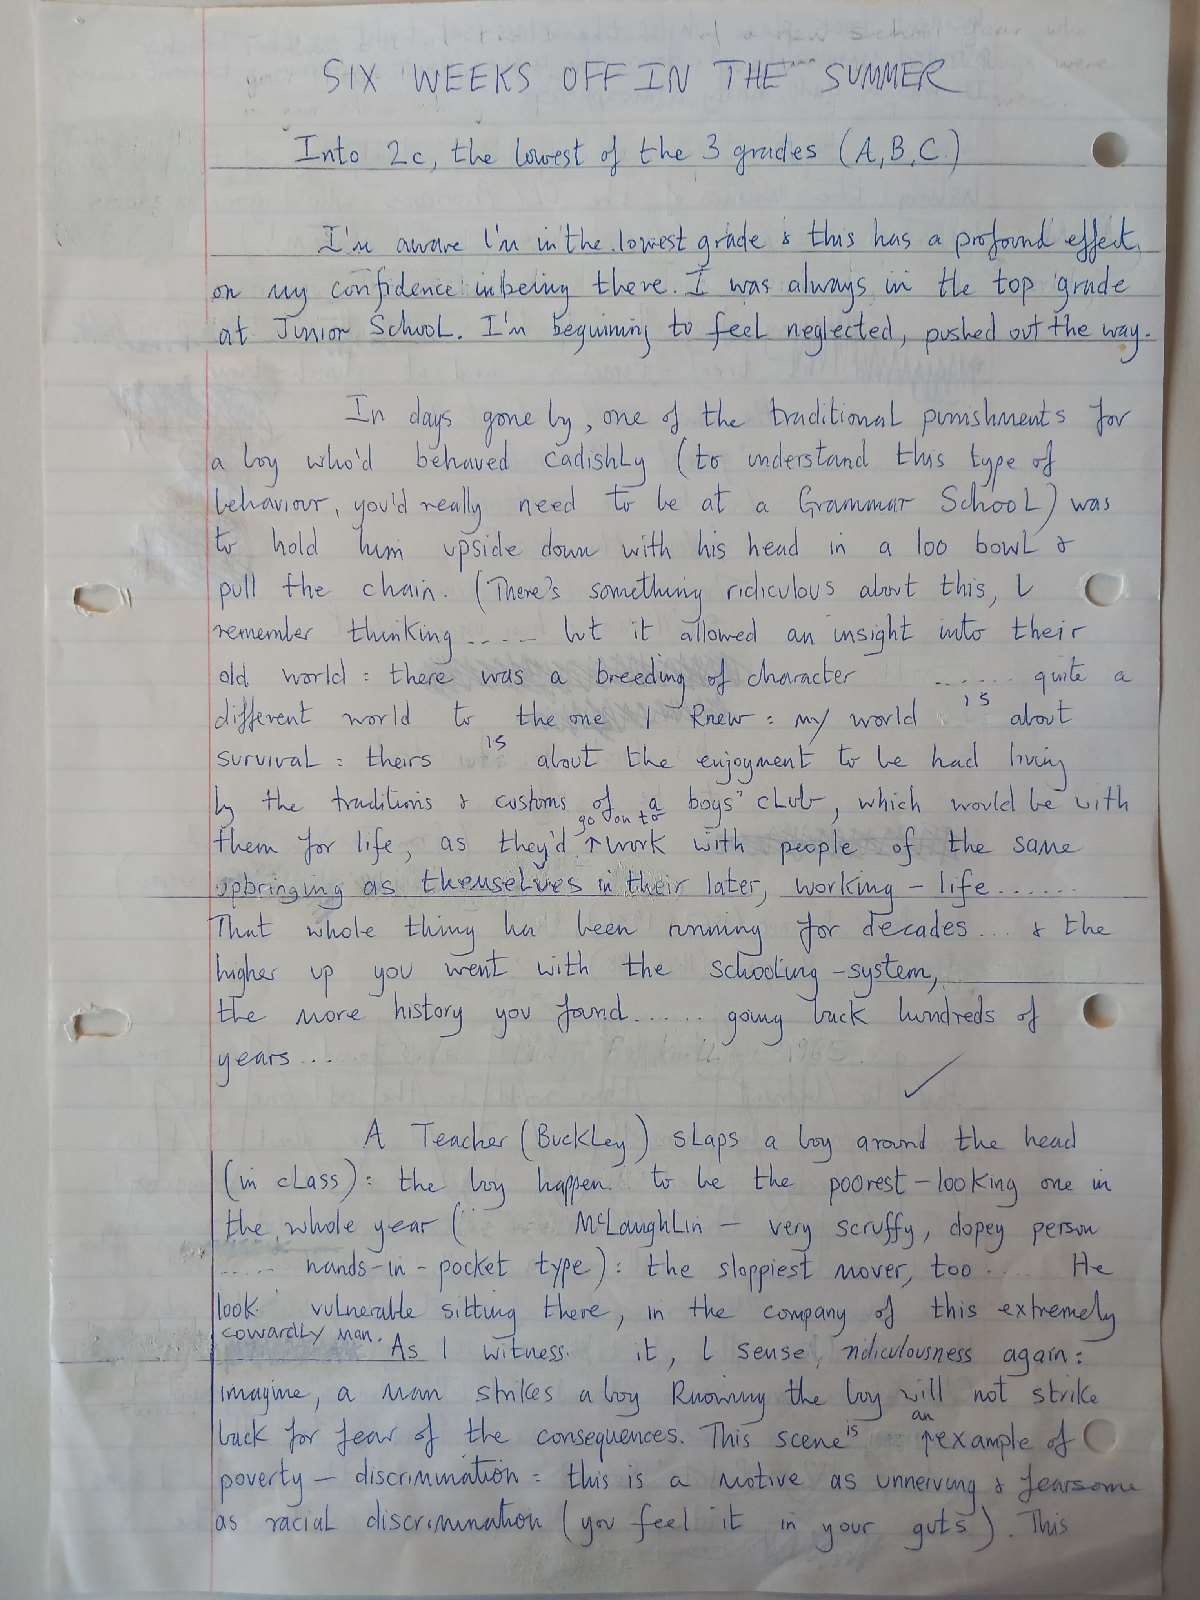 SIX WEEKS OFF IN THE SUMMER
Into 2c, the lowest of the 3 grades (A, B, C)
I'm aware I'm in the lowest grade & this has a profound effect
on my confidence in being there. I was always in the top grade
at Junior School. I'm beginning to feel neglected, pushed out the way.
In days gone by, one of the traditional punishments for
a boy who'd behaved cadishly (to understand this type of
behaviour, you'd really need to be at a Grammar School) was
to hold him upside down with his head in a loo bowl &
pull the chain. (There's something ridiculous about this, I
remember thinking ....... but it allowed an insight into their
old world : there was a breeding of character ...... quite a
different world to the one I knew : my world is about
survival : theirs is about the enjoyment to be had living
by the traditions & customs of a boys' club, which would be with
them for life, as they'd go on to work with people of the same
upbringing as themselves in their later, working - life.......
That whole thing ha been running for decades ... & the
higher up you went with the schooling - system,
the more history you found...... going back hundreds of
years...
A Teacher (Buckley) slaps a boy around the head
(in class) : the boy happen to be the poorest - looking one in
the whole year ( McLaughlin - very scruffy, dopey person
..... hands-in-pocket type) : the sloppiest mover, too .... He
look vulnerable sitting there, in the company of this extremely
cowardly man. As I witness it, I sense ridiculousness again :
imagine, a man strikes a boy knowing the boy will not strike
back for fear of the consequences. This scene is an example of
poverty - discrimination : this is a motive as unnerving & fearsome
as racial discrimination (you feel it in your guts). This